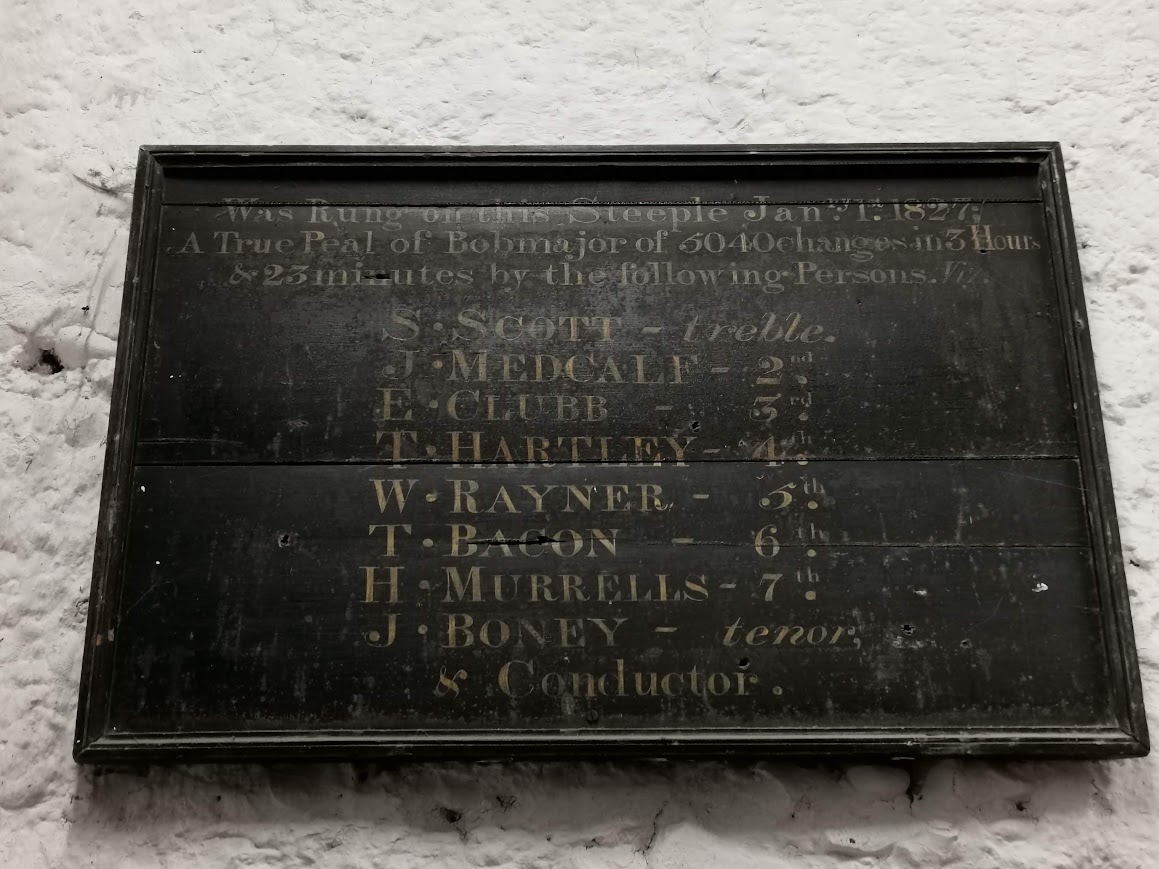 Was Rung on this Steeple Jan.y 1.st 1827,
A True Peal of Bobmajor of 5040 changes in 3 Hours
& 23 minutes by the following Persons. Viz.
S · SCOTT - treble.
J · MEDCALF - 2nd.
E · CLUBB - 3rd.
T · HARTLEY - 4th.
W · RAYNER - 5th.
T · BACON - 6th.
H · MURRELLS - 7th.
J · BONEY - tenor,
& Conductor.